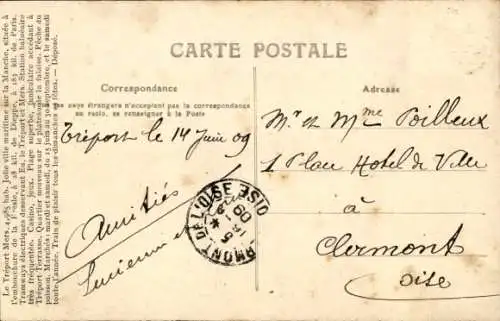 Le Tréport Mers, 4,985 hab. Jolie ville maritime sur la Manche, située à
l'embouchure de la Bresle, à 28 kil. de Dieppe, à 183 kil. de Paris.
Tramways électriques desservant Eu, le Tréport et Mers. Station balnéaire
très fréquentée. Casino, jeux. Plage superbe, funiculaire accédant à
Tréport Terrasse. Quartier nouveau sur le plateau de la falaise. Pêche du
poisson. Marchés: mardi et samedi, du 15 juin au 30 septembre, et le samedi
toute l'année. Train de plaisir tous les dimanches et fêtes. Déposé.
CARTE POSTALE
Correspondance
pays étrangers n'acceptent pas la correspondance
au recto, se renseigner à la Poste
Tréport le 14 Juin 09
Amitiés
Lucienne et
Adresse
Mr et Mme Poilleux
1 Place Hotel de Ville
à
Clermont
Oise
RMONT DE L'OISE OISE
09